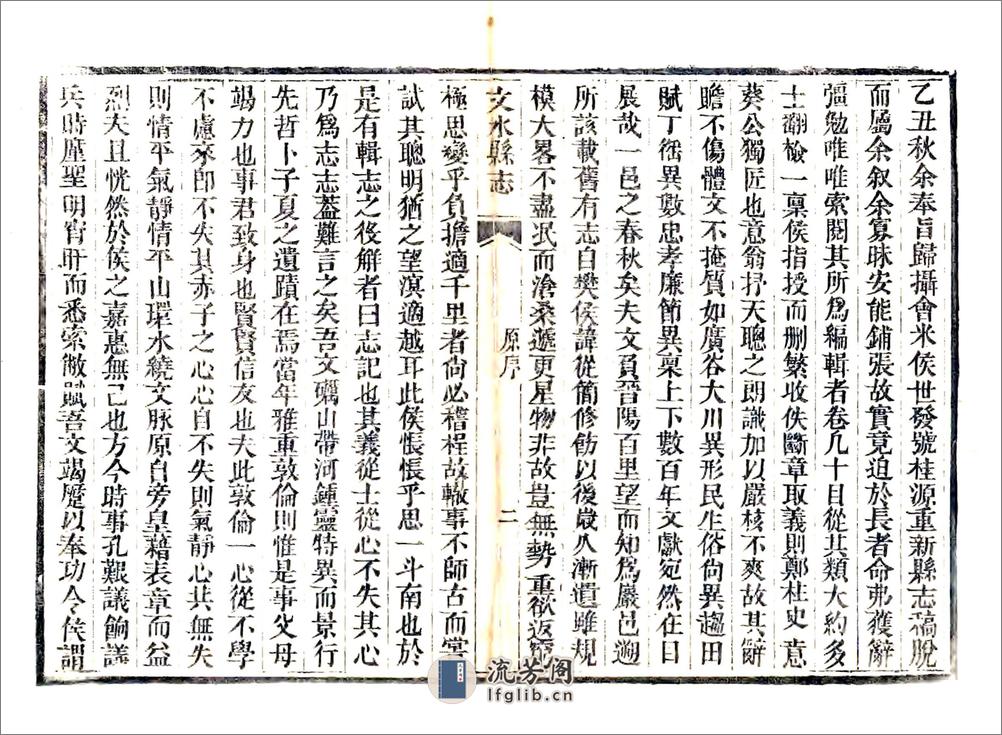 乙丑秋余奉旨歸攝會米侯世發號桂源重新縣志稿脫
而屬余叙余寡昧安能鋪張故實竟迫於長者命弗獲辭
彊勉唯唯索閱其所為編輯者卷凡十目從其類大約多
士翻愉一稟侯指授而删繁收佚斷章取義則鄭柱史意
葵公獨匠也意翁抒天聰之朗識加以嚴核不爽故其辭
贍不傷體文不掩質如廣谷大川異形民生俗尚異趨田
賦丁徭異數忠孝廉節異稟上下數百年文獻宛然在目
展哉一邑之春秋矣夫文負晉陽百里望而知為嚴邑溯
所該載舊有志自樊侯諱從簡修飭以後歲久漸遺雖規
模大畧不盡泯而滄桑遞更星物非故豈無勢重欲返窮
文水縣志
原序
二
極思變乎負擔適千里者尚必稽程故轍事不師古而嘗
試其聰明猶之望漠適越耳此侯悵悵乎思一斗南也於
是有輯志之役解者曰志記也其義從士從心不失其心
乃為志志葢難言之矣吾文礪山帶河鍾靈特異而景行
先哲卜子夏之遺蹟在焉當年雅重敦倫則惟是事父母
竭力也事君致身也賢賢信友也夫此敦倫一心從不學
不慮來即不失其赤子之心心自不失則氣靜心共無失
則情平氣靜情平山環水繞文脉原自旁皇藉表章而益
烈夫且恍然於侯之嘉惠無已也方今時事孔艱議餉議
兵時厪聖明宵旰而悉索敝賦吾文竭蹷以奉功令侯謂
流芳阁
lfglib.cn